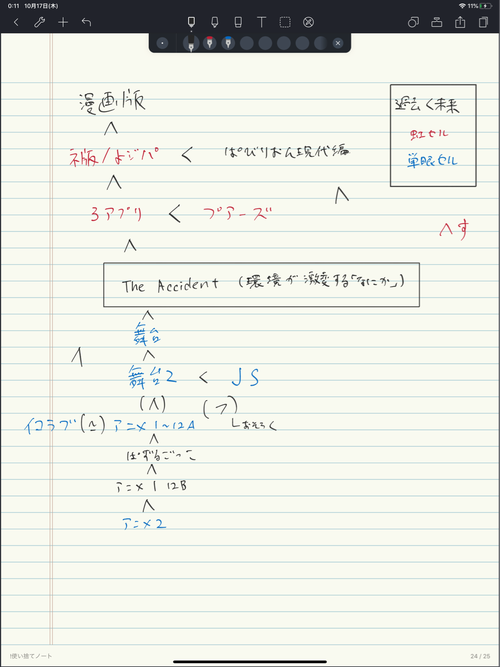 0:11 10月17日(木)
11%
漫画版
∧
ネ版/よジパ < ぱびりおん現代編
∧
∧
3アプリ < プアーズ
∧
過去<未来
虹セル
単眼セル
∧す
The Accident (環境が激変する「なにか」)
∧
舞台
∧
∧
舞台2 < JS
(∧)
(フ)
イコラブ(~) アニメ1~12A
└おそらく
∧
ぱずるごっこ
∧
アニメ1 12B
∧
アニメ2
!使い捨てノート
24 / 25